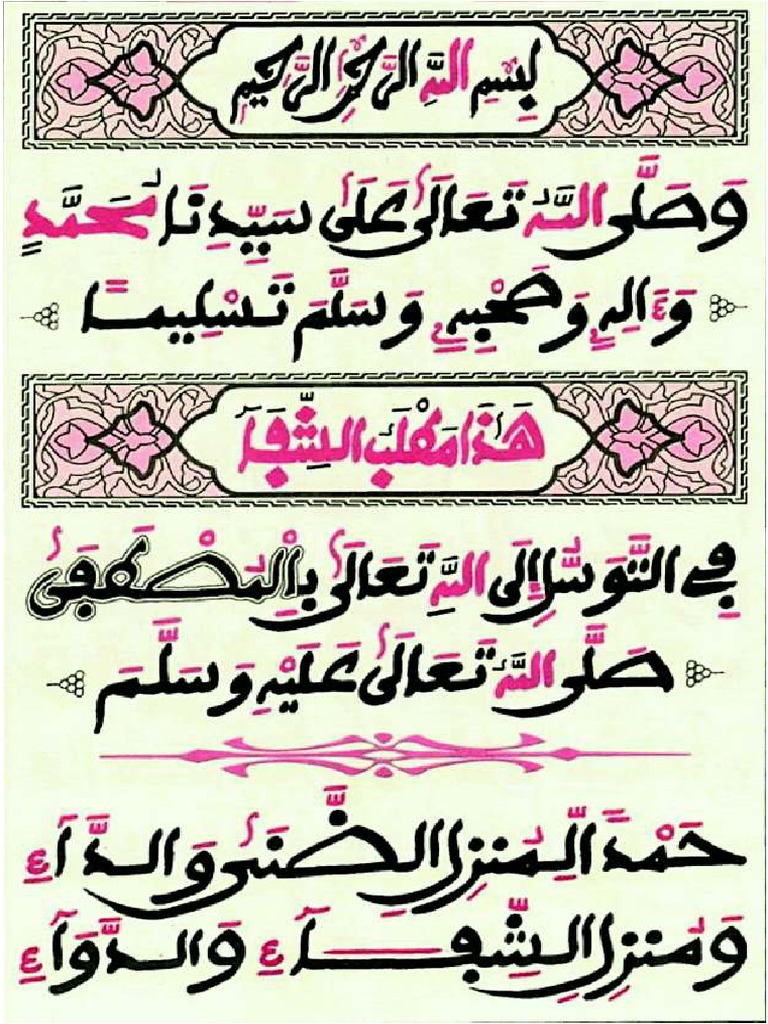 بِسْمِ اللَّهِ الرَّحْمَٰنِ الرَّحِيمِ
وَصَلَّى اللَّهُ تَعَالَىٰ عَلَىٰ سَيِّدِنَا مُحَمَّدٍ
وَءَالِهِ وَصَحْبِهِ وَسَلَّمَ تَسْلِيمًا
هَٰذَا مَطْلَبُ الشِّفَآ
فِے التَّوَسُّلِ إِلَى اللَّهِ تَعَالَىٰ بِالْمُصْطَفَىٰ
صَلَّى اللَّهُ تَعَالَىٰ عَلَيْهِ وَسَلَّمَ
حَمْدًا لِّمُنزِلِ الضَّنَىٰ وَالدَّآءِ
وَمُنزِلِ الشِّفَآءِ وَالدَّوَآءِ